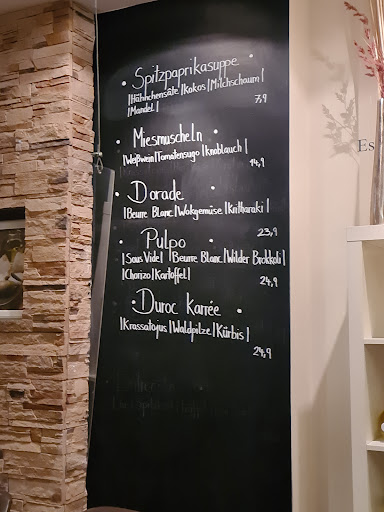 • Spitzpaprikasuppe •
|Hähnchensate|Kokos|Milchschaum|
|Mandel|
7,9
• Miesmuscheln •
|Weißwein|Tomatensugo|Knoblauch|
14,9
• Dorade •
|Beurre Blanc|Wokgemüse|Kritharaki|
23,9
• Pulpo •
|Sous Vide|Beurre Blanc|Wilder Brokkoli|
|Chorizo|Kartoffel|
24,9
• Duroc Karrée •
|Krassatojus|Waldpilze|Kürbis|
24,9
Es